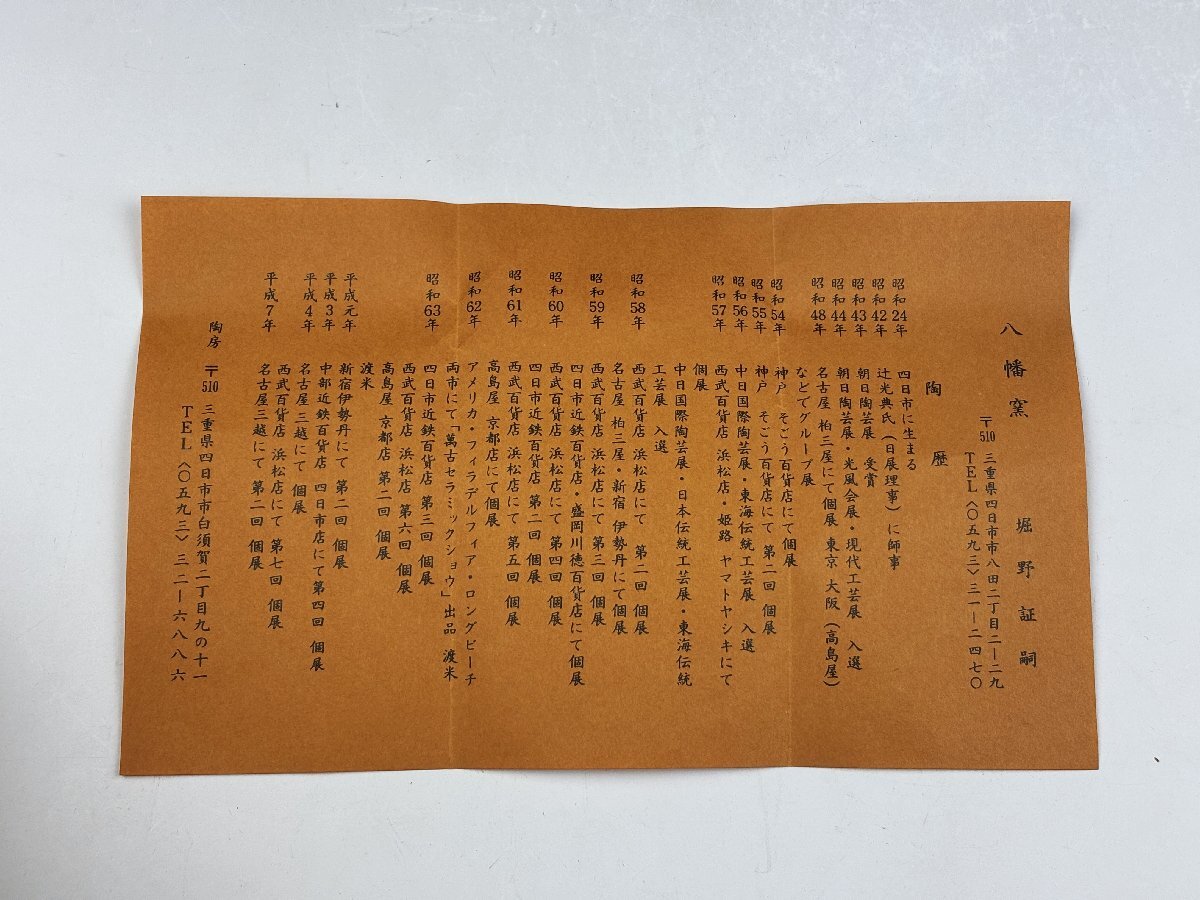 八幡窯
堀野証嗣
〒510 三重県四日市市八田二丁目二ー二九
TEL〈〇五九三〉三一ー二四七〇
陶歴
昭和24年 四日市に生まる
昭和42年 辻光典氏(日展理事)に師事
昭和43年 朝日陶芸展 受賞
昭和44年 朝日陶芸展・光風会展・現代工芸展 入選
昭和48年 名古屋 柏三屋にて個展 東京 大阪(高島屋)
などでグループ展
昭和54年 神戸 そごう百貨店にて個展
昭和55年 神戸 そごう百貨店にて 第二回 個展
昭和56年 中日国際陶芸展・東海伝統工芸展 入選
昭和57年 西武百貨店 浜松店・姫路 ヤマトヤシキにて
個展
中日国際陶芸展・日本伝統工芸展・東海伝統
工芸展 入選
昭和58年 西武百貨店 浜松店にて 第二回 個展
名古屋 柏三屋・新宿 伊勢丹にて個展
昭和59年 西武百貨店 浜松店にて 第三回 個展
四日市近鉄百貨店・盛岡川徳百貨店にて個展
昭和60年 西武百貨店 浜松店にて 第四回 個展
四日市近鉄百貨店 第二回 個展
昭和61年 西武百貨店 浜松店にて 第五回 個展
高島屋 京都店にて個展
昭和62年 アメリカ・フィラデルフィア・ロングビーチ
両市にて「萬古セラミックショウ」出品 渡米
昭和63年 四日市近鉄百貨店 第三回 個展
西武百貨店 浜松店 第六回 個展
高島屋 京都店 第二回 個展
渡米
平成元年 新宿伊勢丹にて 第二回 個展
平成3年 中部近鉄百貨店 四日市店にて第四回 個展
平成4年 名古屋三越にて 個展
西武百貨店 浜松店にて 第七回 個展
平成7年 名古屋三越にて 第二回 個展
陶房 〒510 三重県四日市市白須賀二丁目九の十一
TEL〈〇五九三〉三二ー六八八六